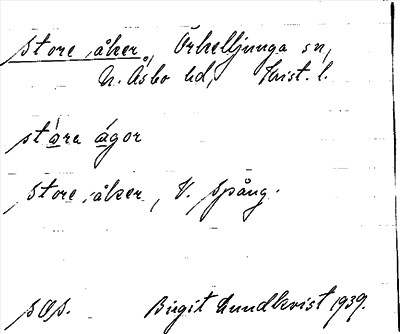 Store åker, Örkelljunga sn,
N. Åsbo hd, Krist. l.
stára ágor
Store åker, V. Spång.
sOs.
Birgit Lundkvist 1939.